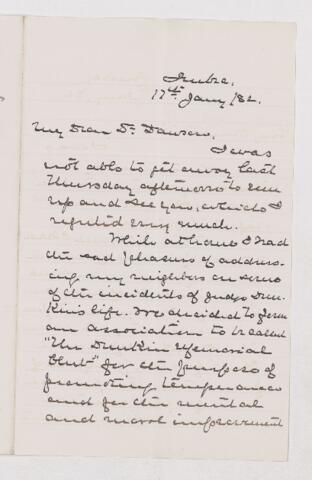 17th Jany /82.
My Dear Dr Dawson,
I was
not able to get away last
Thursday afternoon to run
up and see you, which I
regretted very much.
While at home I had
the sad pleasure of address-
ing my neighbors on some
of the incidents of Judge Dun-
kin's life. We decided to form
an association to be called
"The Dunkin Memorial
Club" for the purpose of
promoting temperance
and for the mental
and moral improvement